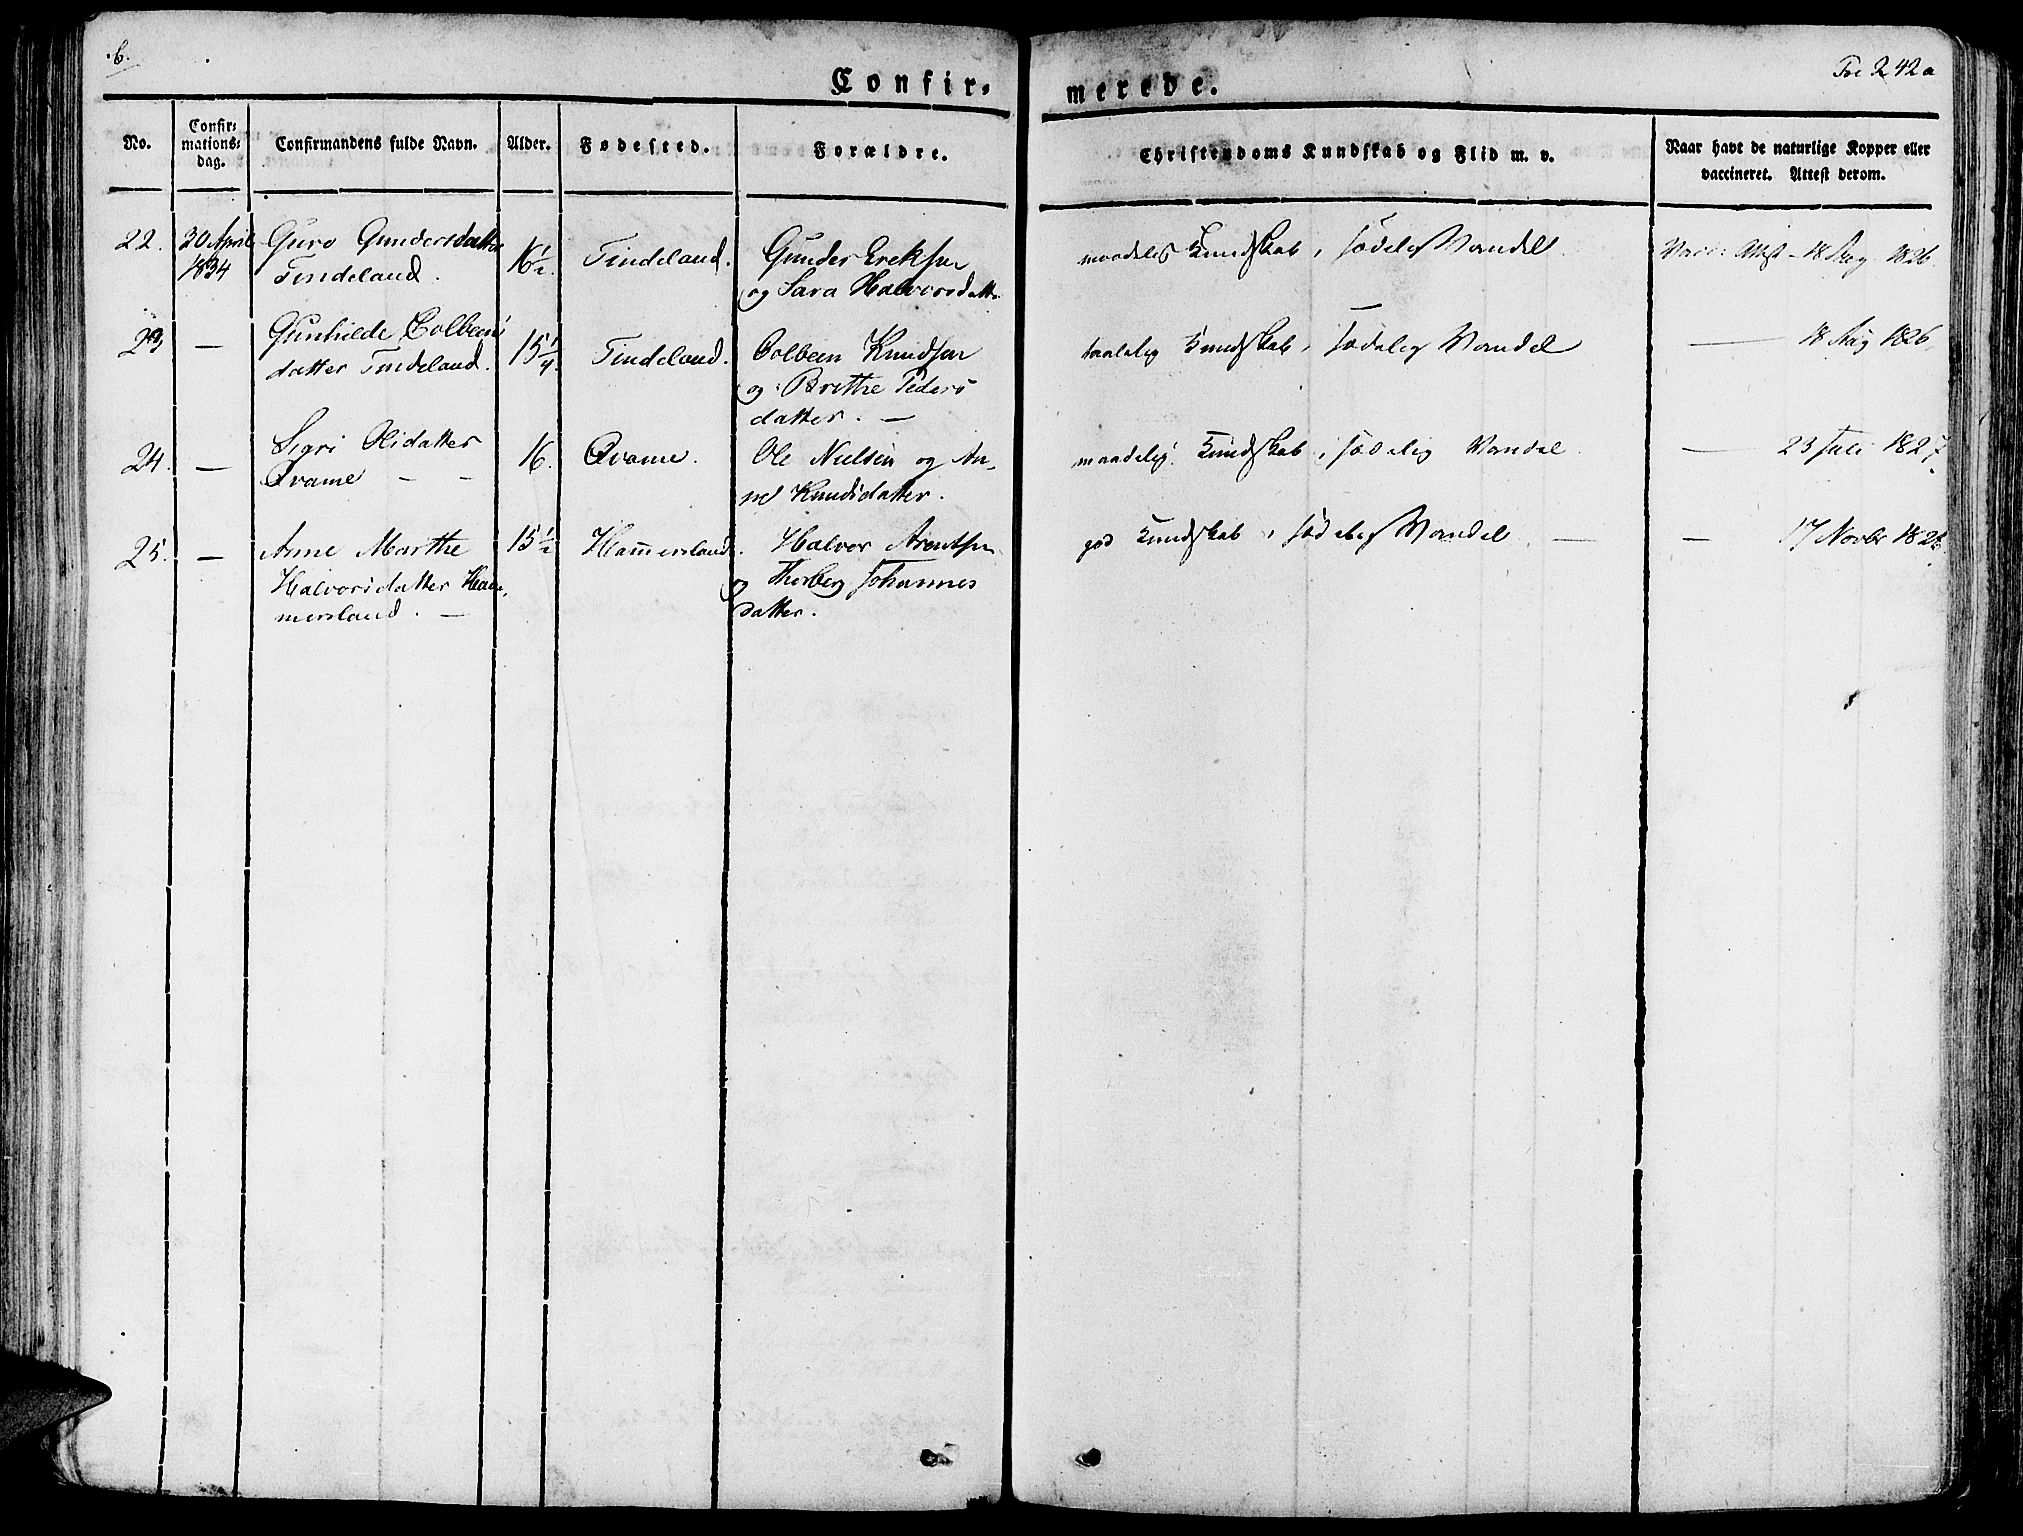 6.
Fol 242a
Confir=
merede.
No.
Confir=
mations=
dag.
Confirmandens fulde Navn.
Alder.
Fødested.
Forældre.
Christendoms Kundskab og Flid m. v.
Naar havt de naturlige Kopper eller
vaccineret. Attest derom.
22.
30 April
1834
Guro Gundersdatter
Tindeland.
16½.
Tindeland.
Gunder Ereksen
og Sara Halvorsdatt.
maadelig Kundskab, sædelig Vandel.
Vacc: Attst 18 Aug 1826.
23
—
Gunhilde Colbeens
datter Tindeland.
15¼.
Tindeland.
Colbeen Knudsen
og Brithe Peders
datter. —
taalelig Kundskab, sædelig Vandel
— 18 Aug 1826.
24.
—
Sigri Olsdatter
Qvame — —
16.
Qvame.
Ole Nielsen og An,
ne Knudsdatter.
maadelig Kundskab, sædelig Vandel
— 23 Juli 1827.
25.
—
Anne Marthe
Halvorsdatter Ham,
mersland. —
15½
Hamersland.
Halvor Arentsen
og Thorberg Johannes
datter.
god Kundskab, sædelig Vandel —
— 17 Novbr